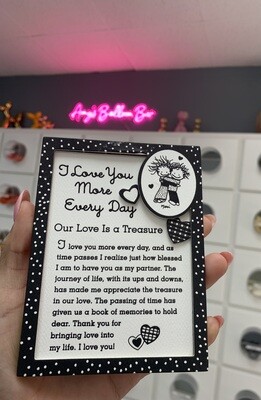 Amy's Balloon Bar
I Love You
More
Every Day
Our Love Is a Treasure
I love you more every day, and as
time passes I realize just how blessed
I am to have you as my partner. The
journey of life, with its ups and downs,
has made me appreciate the treasure
in our love. The passing of time has
given us a book of memories to hold
dear. Thank you for
bringing love into
my life. I love you!